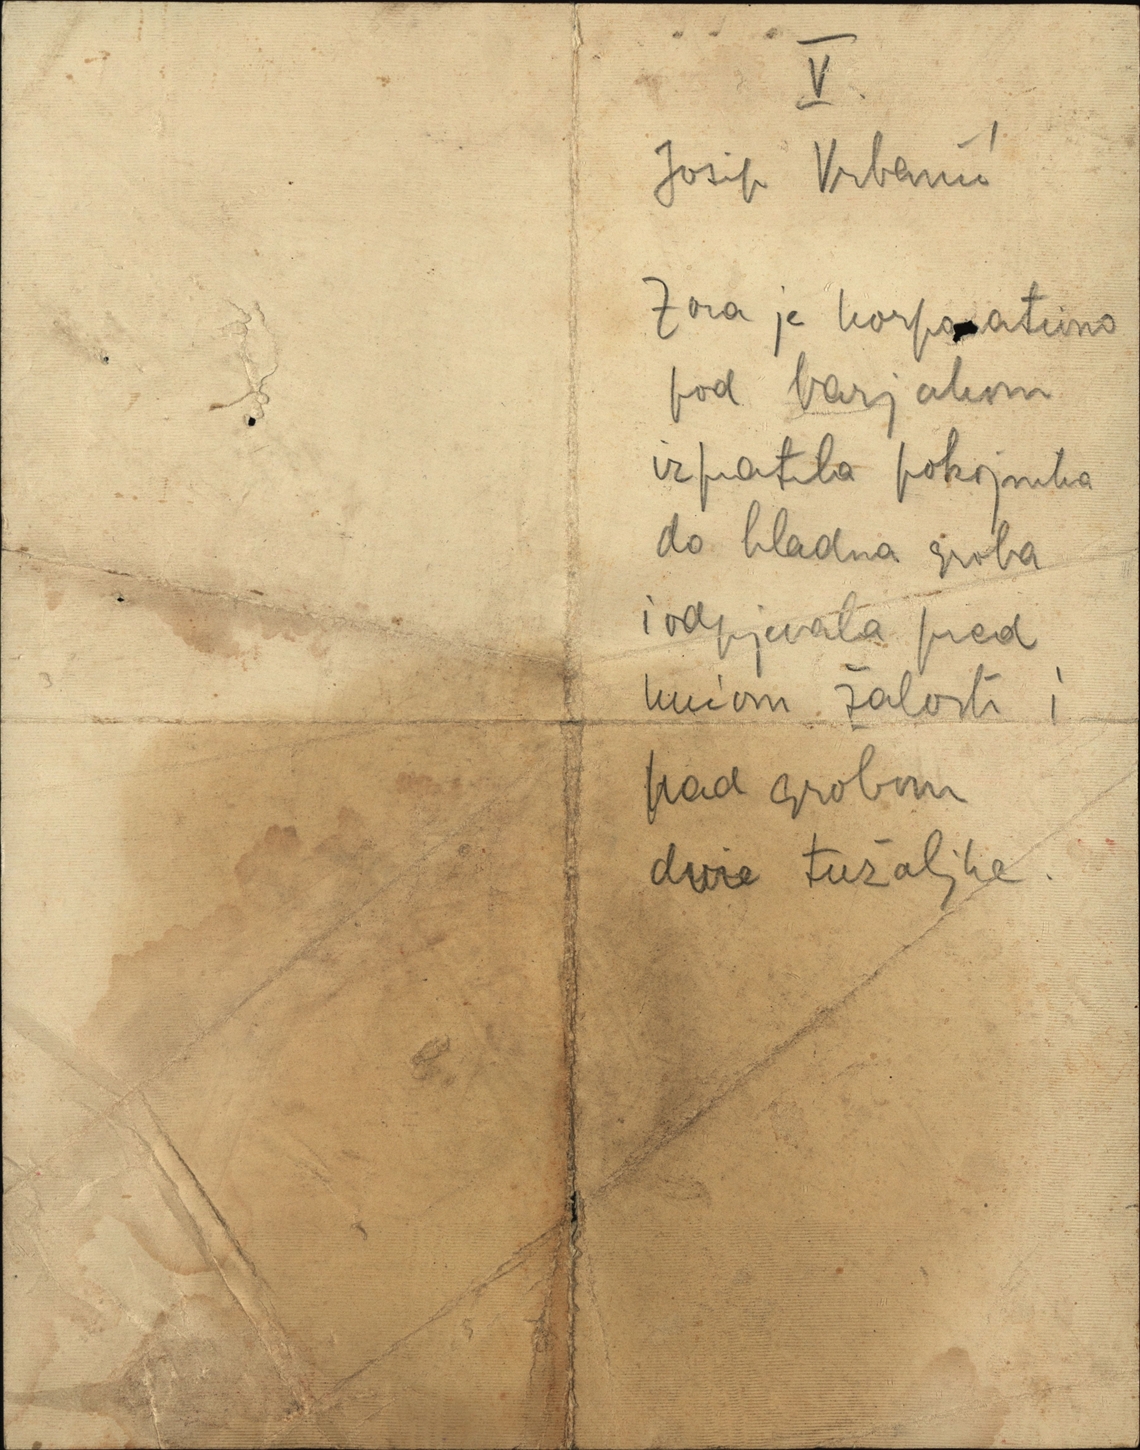 V
Josip Vrbanić
Zora je korporativno
pod barjakom
izpratila pokojnika
do hladna groba
i odpjevala pred
kućom žalosti i
nad grobom
dvie tužaljke.